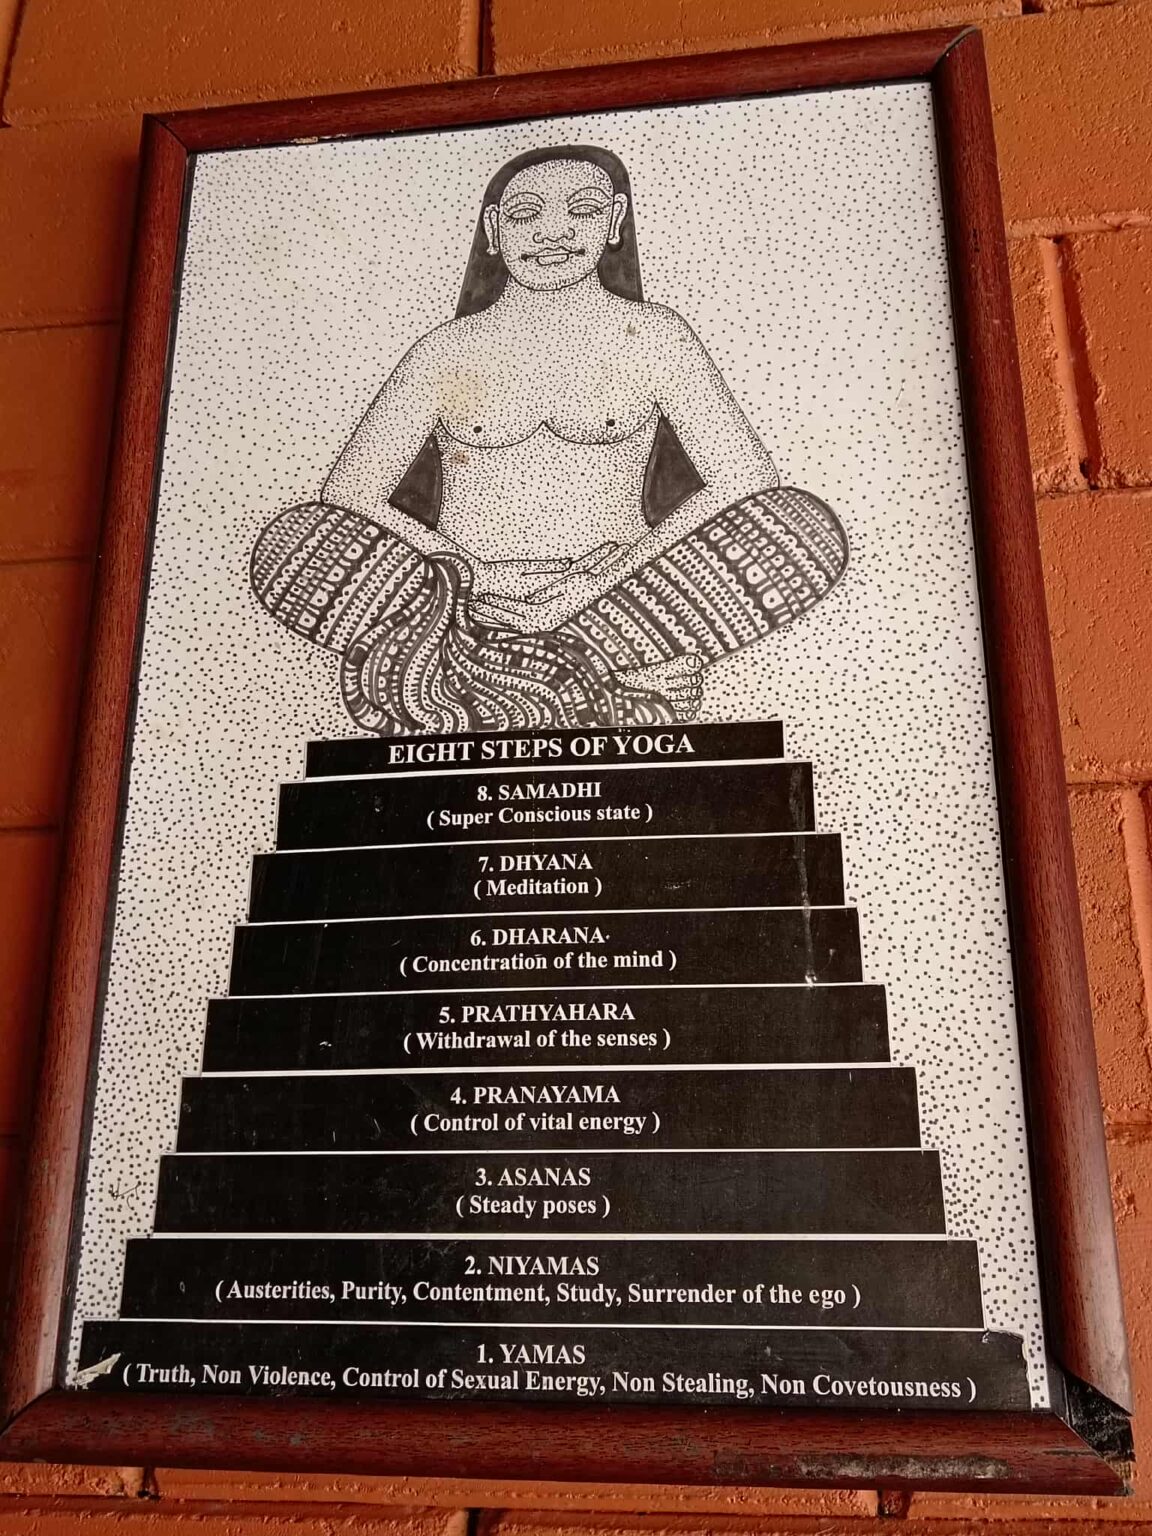 EIGHT STEPS OF YOGA
8. SAMADHI
( Super Conscious state )
7. DHYANA
( Meditation )
6. DHARANA
( Concentration of the mind )
5. PRATHYAHARA
( Withdrawal of the senses )
4. PRANAYAMA
( Control of vital energy )
3. ASANAS
( Steady poses )
2. NIYAMAS
( Austerities, Purity, Contentment, Study, Surrender of the ego )
1. YAMAS
( Truth, Non Violence, Control of Sexual Energy, Non Stealing, Non Covetousness )